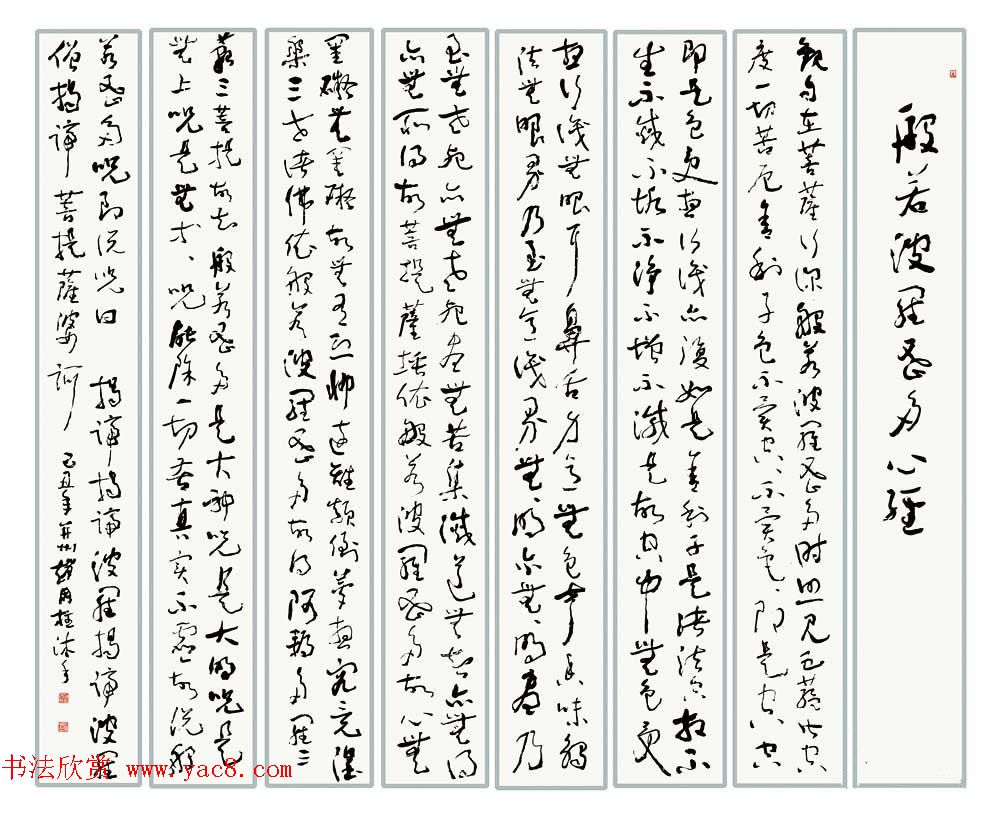 般若波羅蜜多心經
觀自在菩薩行深般若波羅蜜多時照見五蘊皆空
度一切苦厄舍利子色不異空空不異色色即是空空
即是色受想行識亦復如是舍利子是諸法空相不
生不滅不垢不淨不增不減是故空中無色受
想行識無眼耳鼻舌身意無色聲香味觸
法無眼界乃至無意識界無無明亦無無明盡乃
至無老死亦無老死盡無苦集滅道無智亦無得
亦無所得故菩提薩埵依般若波羅蜜多故心無
罣礙無罣礙故無有恐怖遠離顛倒夢想究竟涅
槃三世諸佛依般若波羅蜜多故得阿耨多羅三
藐三菩提故知般若蜜多是大神咒是大明咒是
無上咒是無等等咒能除一切苦真實不虛故說般
若蜜多咒即說咒曰 揭諦揭諦波羅揭諦波羅
僧揭諦菩提薩婆訶
己丑年并州趙國柱沐手
书法欣赏 www.yac8.com